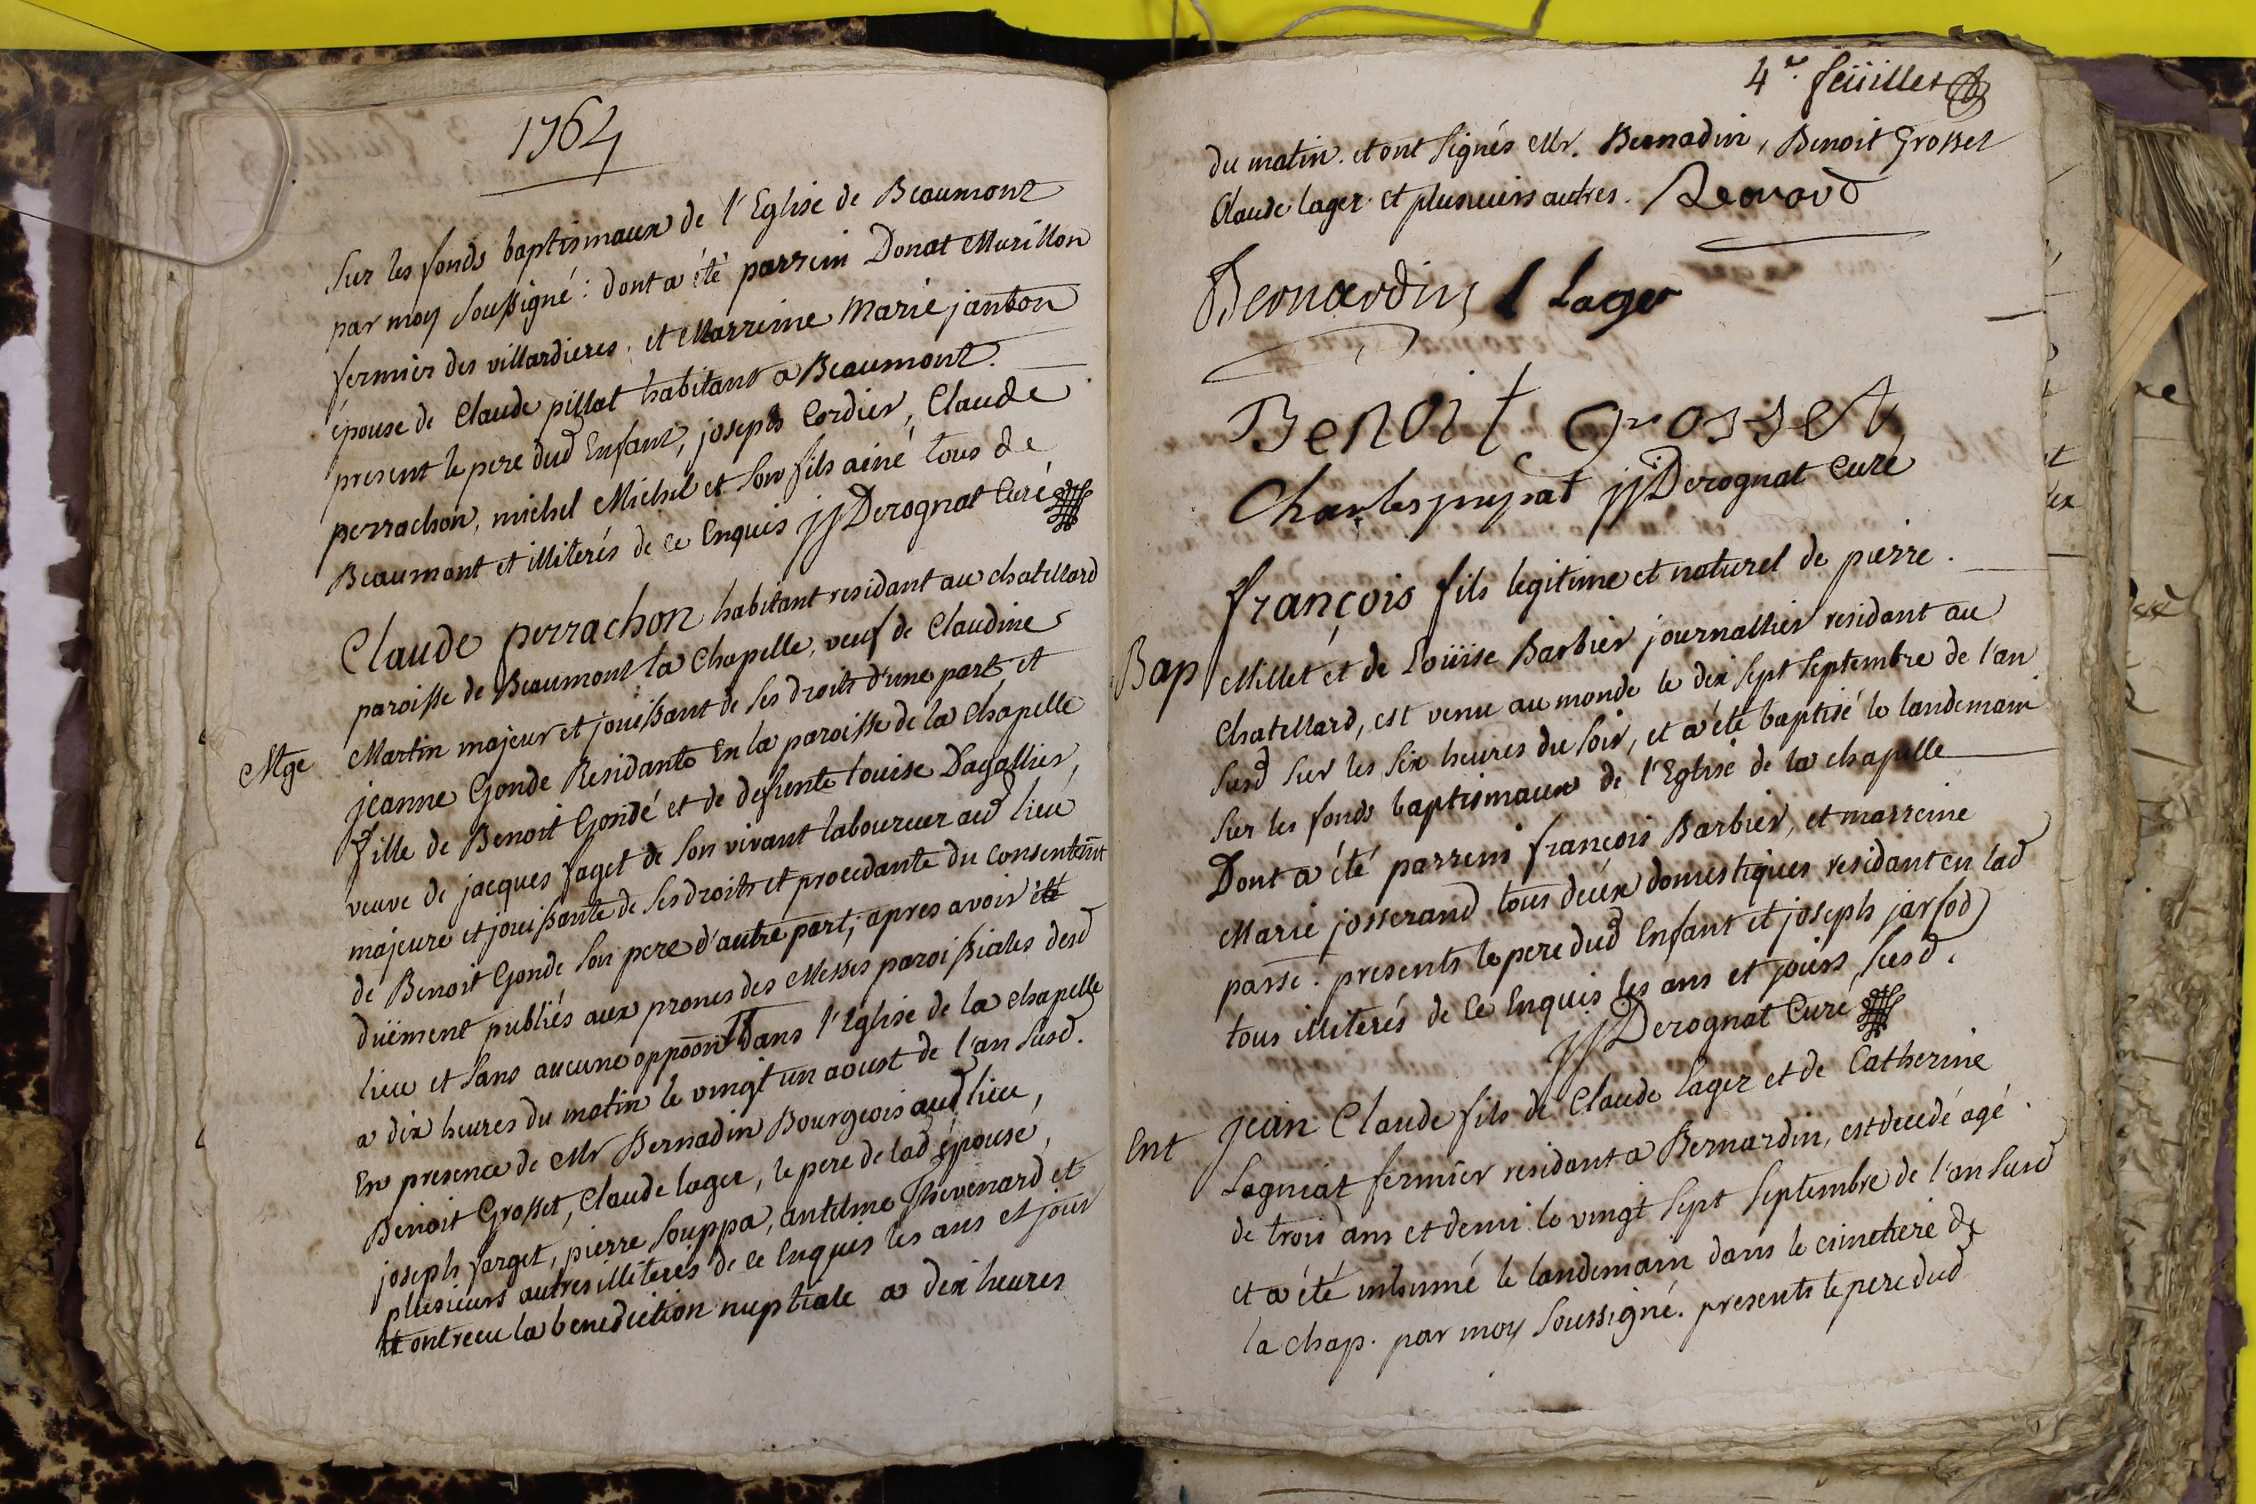 1764
Sur les fonds baptismaux de l'Eglise de Beaumont
par moy soussigné : dont a été parrein Donat Murillon
fermier des villardieres, et Marreine Marie janton
épouse de Claude pillat habitant a Beaumont.
present le pere dud Enfant, joseph Cordier, Claude
perrachon, michel Michel et son fils ainé tous de
Beaumont et illiterés de ce Enquis jjDerognat Curé
Claude perrachon habitant residant au chatellard
paroisse de Beaumont la Chapelle, veuf de Claudine
Mge Martin majeur et jouissant de ses droits d'une part et
jeanne Gonde Residante En la paroisse de la Chapelle
fille de Benoit Gondé et de defunte Louise Dagallier,
veuve de jacques faget de son vivant laboureur aud lieu
majeure et jouissante de ses droits et procedante du consentemt
de Benoit Gonde son pere d'autre part, apres avoir été
duëment publiés aux prones des Messes paroissiales desd
lieu et sans aucune oppoon dans l'Eglise de la chapelle
a dix heures du matin le vingt un aoust de l'an susd.
En presence de Mr Bernadin Bourgeois aud lieu,
Benoit Grosset, Claude lager, le pere de lad épouse,
joseph farget, pierre souppa, antelme Thevenard et
plusieurs autres illiterés de ce Enquis les ans et jour
et ont recu la benediction nuptiale a dix heures
4e. feüillet
du matin. et ont signés Mr. Bernadin, Benoit Grosset
Claude lager et plusieurs autres. Renard
Bernardin l Lager
Benoit grosset
Charles pupat jjDerognat Curé
françois fils legitime et naturel de pierre
Bap Millet et de Loüise Barbier journallier residant au
Chatellard, est venu au monde le dix sept septembre de l'an
susd sur les six heures du soir, et a été baptisé le landemain
sur les fonds baptismaux de l'Eglise de la chapelle
Dont a été parrein françois Barbier, et marreine
Marie josserand tous deux domestiques residant en lad
passe. presents le pere dud Enfant et joseph jarfod
tous illiterés de ce Enquis les ans et jours susd.
jjDerognat Curé
Jean Claude fils de Claude lager et de Catherine
Ent Lagniat fermier residant a Bernardin, est decedé agé
de trois ans et demi le vingt sept septembre de l'an susd
et a été inhumé le landemain dans le cimetiere de
la chap. par moy soussigné. presents le pere dud